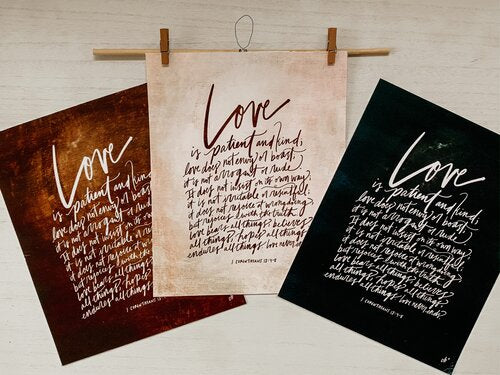 Love
is patient and
love does not envy or
it is not arrogant or
It does not insist on
it is not irritable
it does not rejoice at
but rejoices with the
love bears all things,
all things, hopes
endures all things
1 CORINTHIANS 13:4-8
Love
is patient and kind;
love does not envy or boast;
it is not arrogant or rude
It does not insist on its own way,
it is not irritable or resentful,
it does not rejoice at wrongdoing,
but rejoices with the truth
love bears all things, believes
all things, hopes all things
endures all things. love never ends.
1 CORINTHIANS 13:4-8
Love
is patient and kind;
love does not envy or boast;
it is not arrogant or rude
It does not insist on its own way,
it is not irritable or resentful,
it does not rejoice at wrongdoing,
but rejoices with the truth
love bears all things, believes
all things, hopes all things
endures all things. love never ends.
1 CORINTHIANS 13:4-8